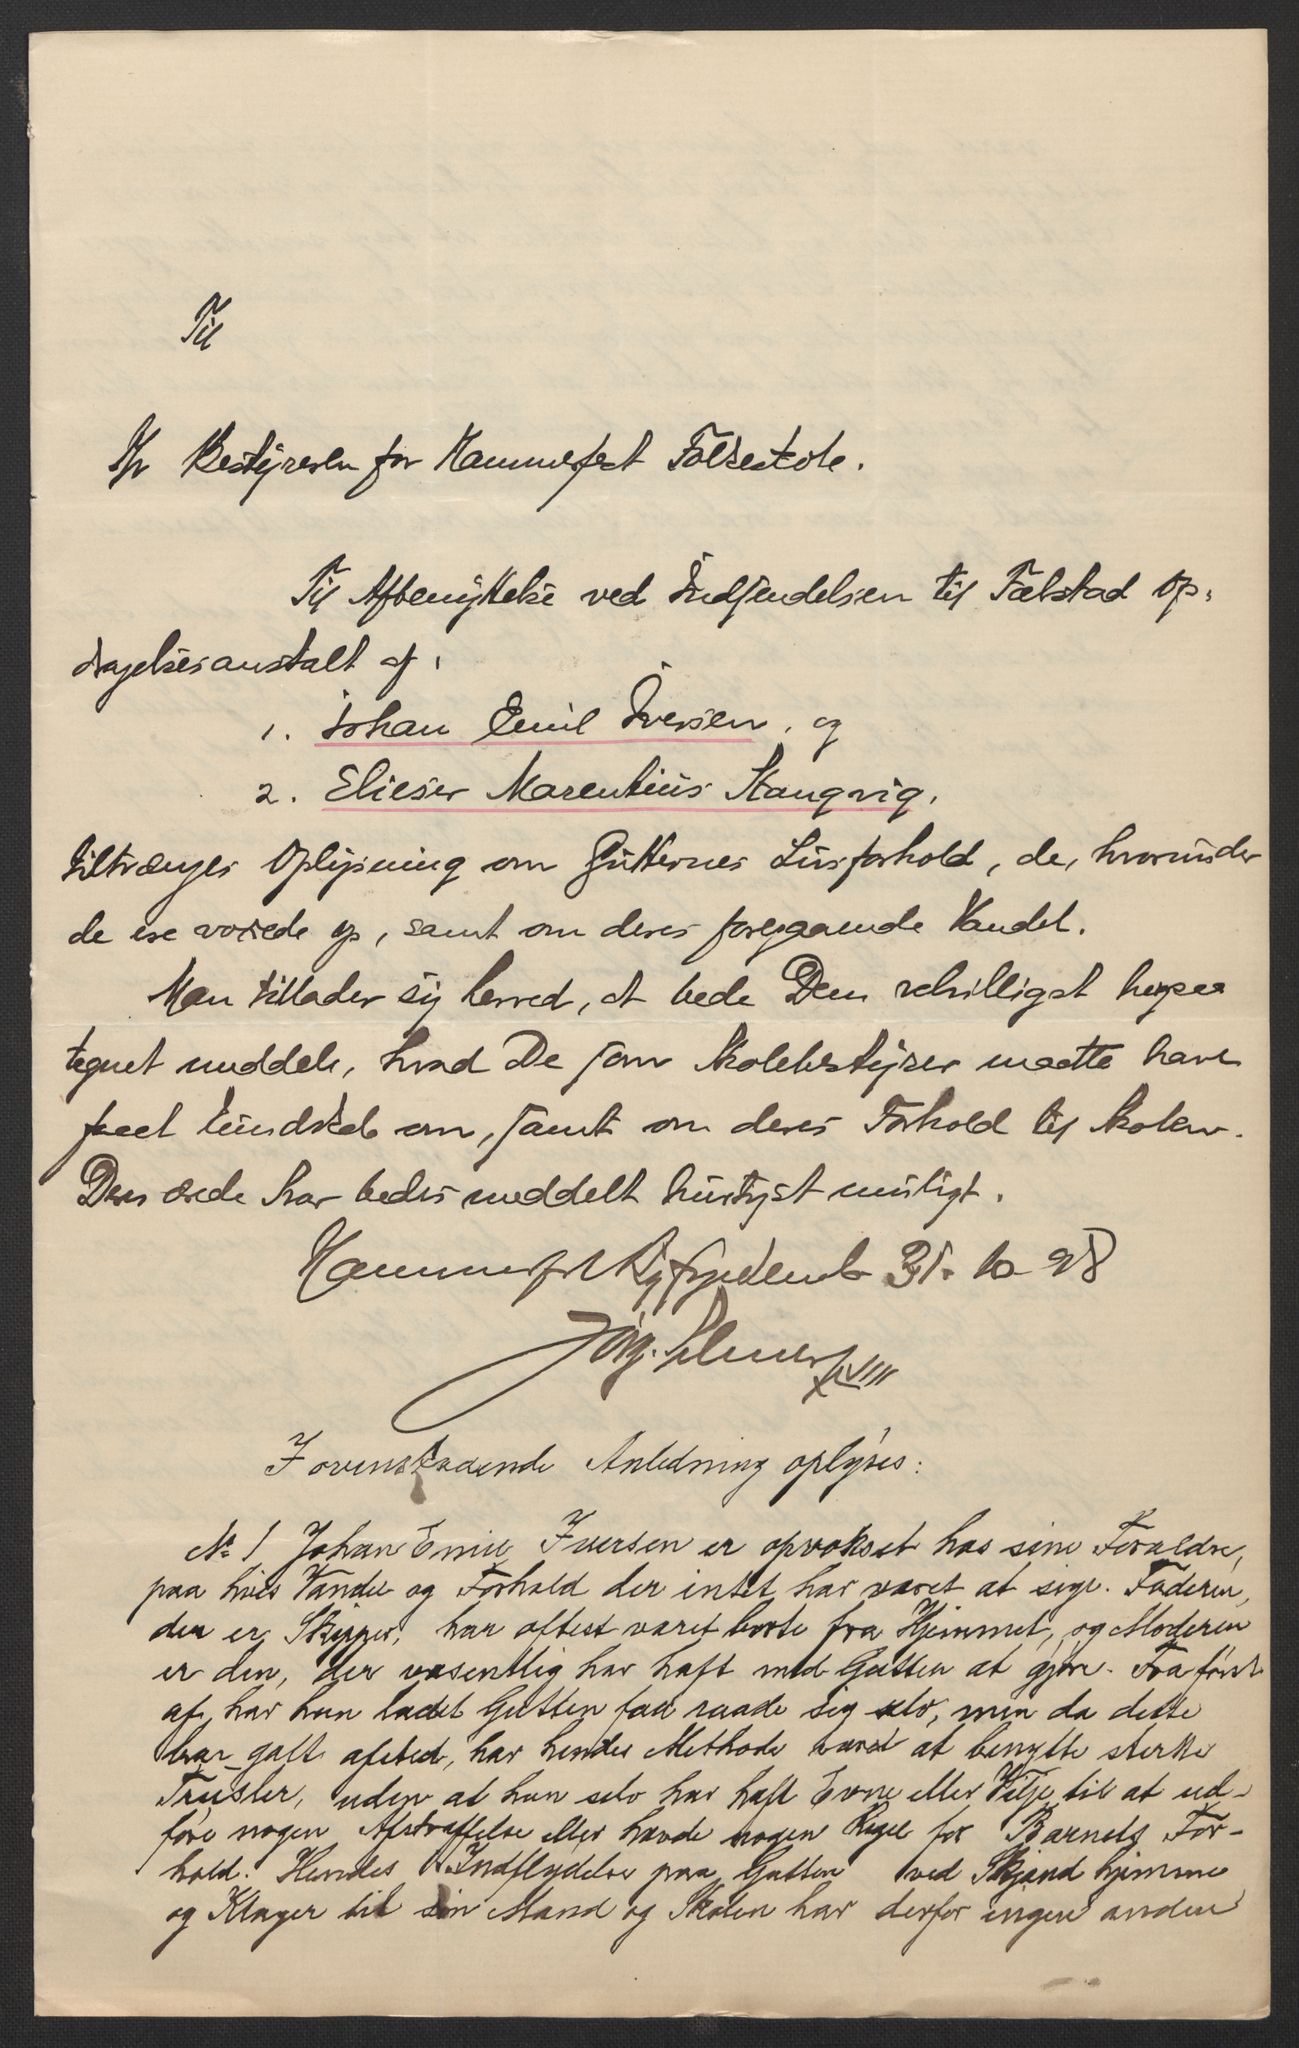 Til
Hr Bestyreren for Hammerfest Folkeskole.
Til Afbenyttelse ved Indsendelsen til Falstad Op-
dragelsesanstalt af:
1. Johan Emil Iversen, og
2. Elieser Marentius Stangvig.
tiltrænges Oplysning om Gutternes Livsforhold, de, hvorunder
de ere voxede op, samt om deres foregaaende Vandel.
Man tillader sig herved, at bede Dem velvilligst herpaa
tegnet meddele, hvad De som Skolebestyrer maatte have
faaet Kundskab om, samt om deres Forhold til Skolen.
Deres ærede Svar bedes meddelt hurtigst muligt.
Hammerfest Byfogedemb 31. 10 98
Jørg.
I ovenstaaende Anledning oplyses:
No 1 Johan Emil Iversen er opvokset hos sine Forældre,
paa hvis Vandel og Forhold der intet har været at sige. Faderen,
der er Skipper, har oftest været borte fra Hjemmet, og Moderen
er den, der væsentlig har haft med Gutten at gjøre. Fra først
af har hun ladet Gutten faa raade sig selv, men da dette
bar galt afsted, har hendes Methode været at benytte sterke
Trusler, uden at hun selv har haft Evne eller Vilje til at ud-
føre nogen Afstraffelse eller hævde nogen Regel for Barnets For-
hold. Hendes Indflydelse paa Gutten ved Skjænd hjemme
og Klager til sin Mand og Skolen har derfor ingen anden